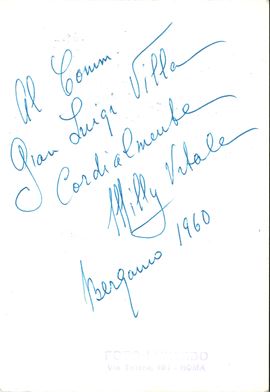 Al Comm.
Gian Luigi Villa
Cordialmente
Milly Vitale
Bergamo 1960
ROMA